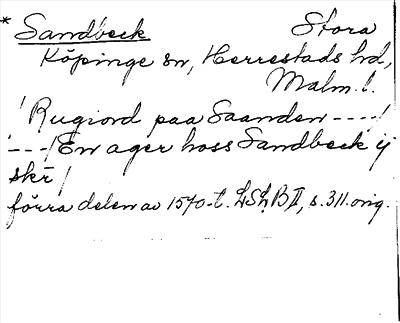 * Sandbeck Stora
Köpinge sn, Herrestads hd,
Malm. l.
/ Rugiord paa Saanden ----/
/---/ En ager hoss Sandbeck ij
skr /
förra delen av 1570-t. LSLB II, s. 311. orig.